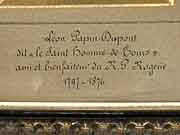 Léon Papin-Dupont
dit « le Saint Homme de Tours »
ami et bienfaiteur du R. P. Rogerie
1797 - 1876